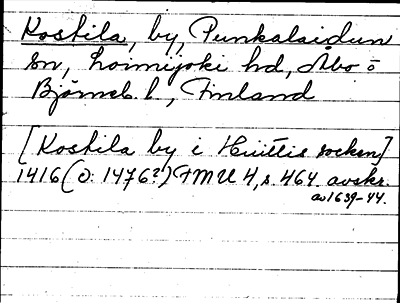 Kostila, by, Punkalaidun
sn, Loimijoki hd, Åbo o
Björneb. l., Finland
[Kostila by i Huittis socken]
1416 (O: 1476?) FMU 4, s. 464. avskr.
av 1639-44.